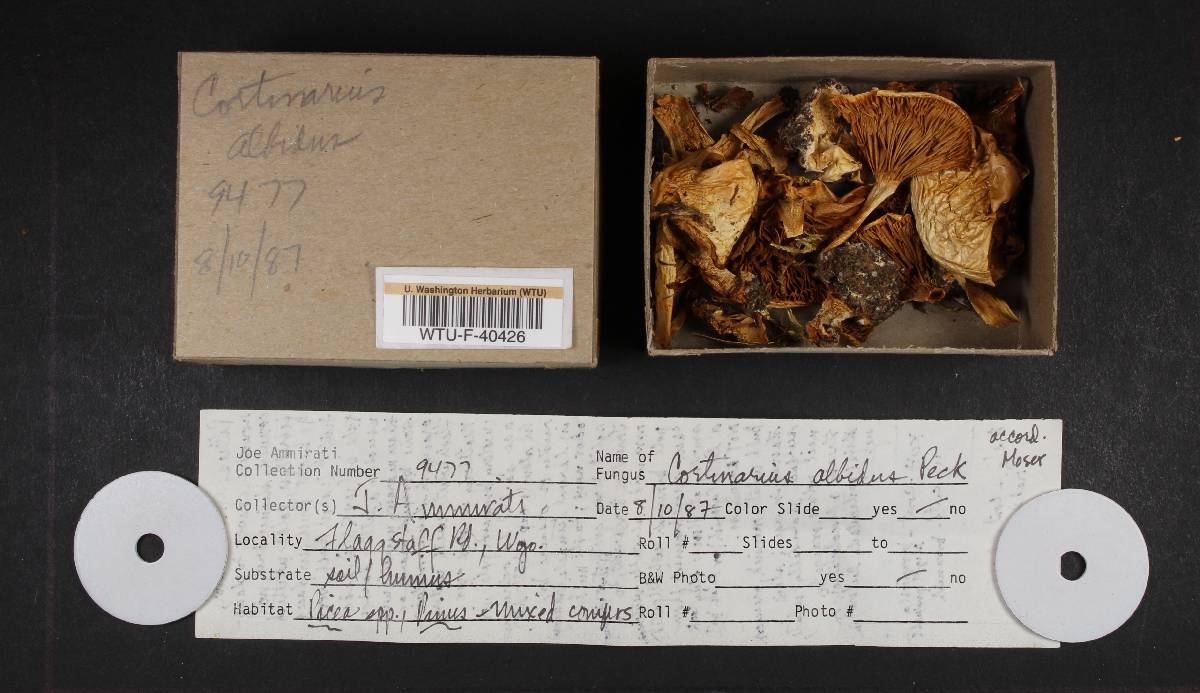 Cortinarius
albidus
9477
8/10/87
U. Washington Herbarium (WTU)
WTU-F-40426
accord.
Moser
Joe Ammirati
Collection Number 9477
Name of
Fungus Cortinarius albidus Peck
Collector(s) J. Ammirati Date 8/10/87 Color Slide yes no
Locality Flagg staff Rd., Wyo. Roll # Slides to
Substrate soil/humus B&W Photo yes no
Habitat Picea spp., Pinus - Mixed conifers Roll # Photo #